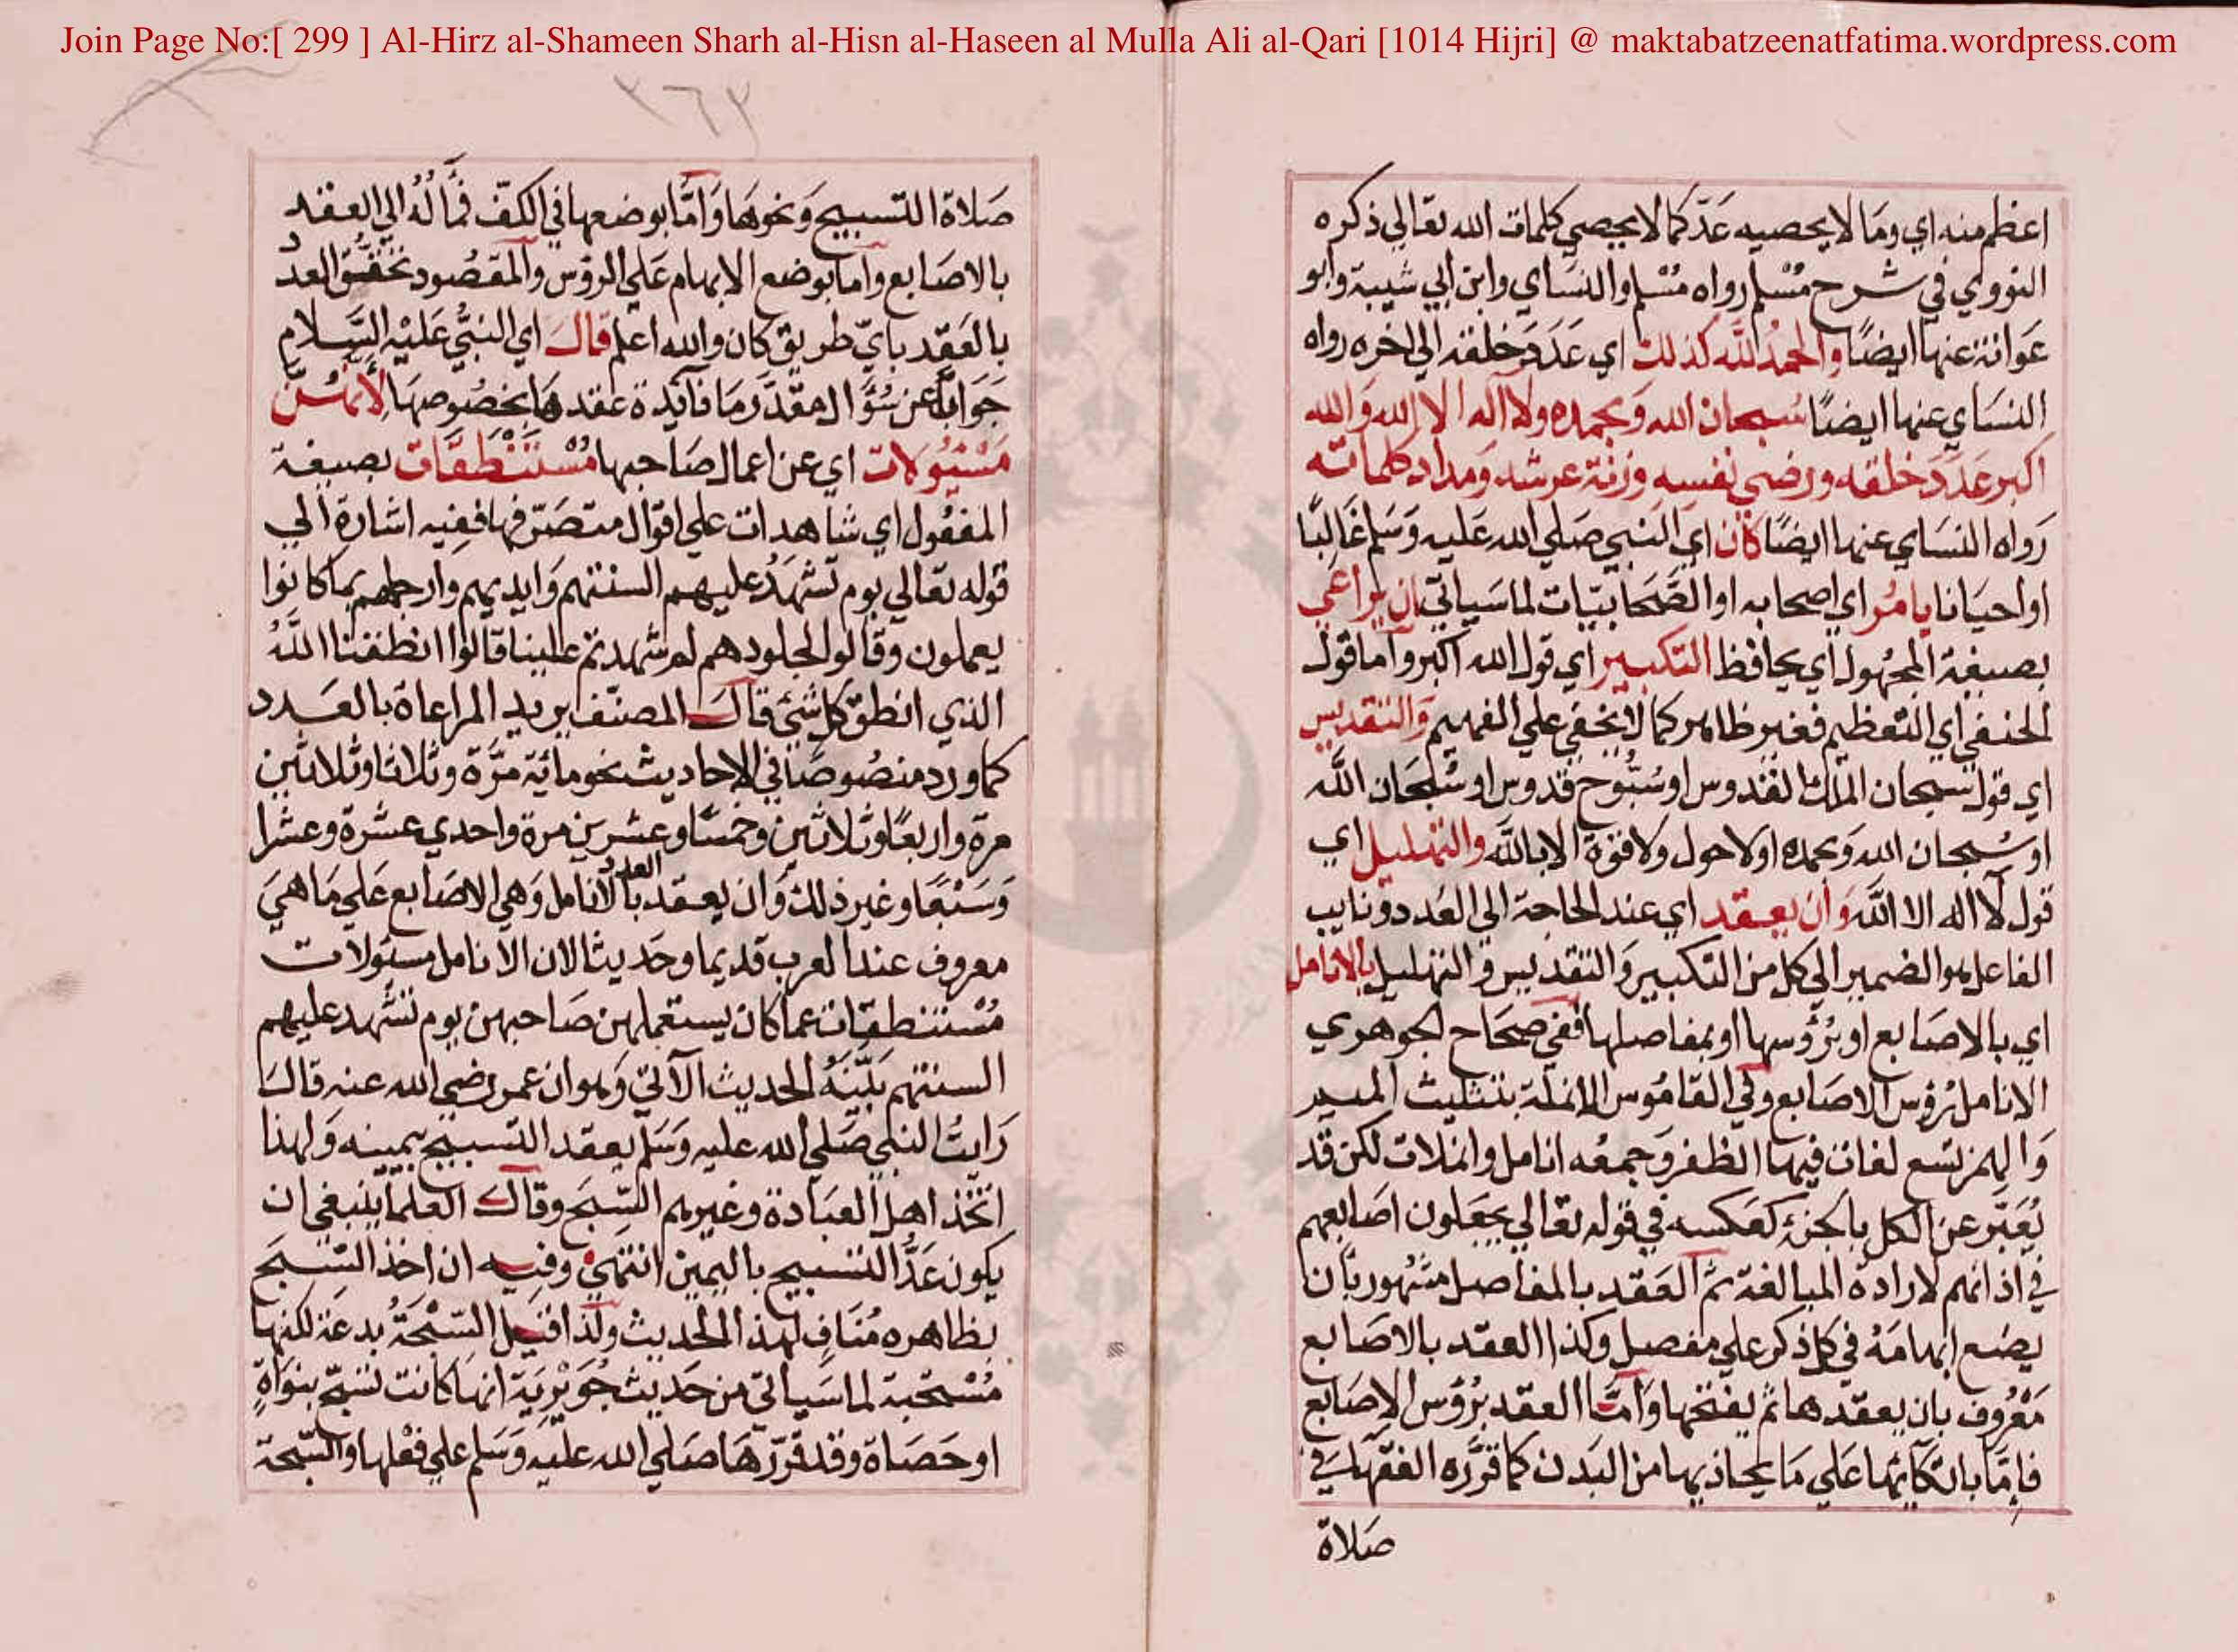 Join Page No:[ 299 ] Al-Hirz al-Shameen Sharh al-Hisn al-Haseen al Mulla Ali al-Qari [1014 Hijri] @ maktabatzeenatfatima.wordpress.com
اعظم منه اي وَمَا لا يحصيه عَدّ كما لا يحصي كلمات الله تعالي ذكره
النووي في شرح مُسْلم رواه مُسْلم والنسَاي وابن ابي شيبة وابو
عَوانة عنها ايضًا والحمدُ للَّه كذلك اي عَدَدَ خلقه الي اخره رواه
النسَاي عنها ايضًا سُبحان الله وَبحمده ولا اله الا الله وَالله
اكبر عَدَدَ خلقه ورضي نفسه وزنة عرشه وَمداد كلماته
رَواه النسَاي عنها ايضًا كان اي النبي صَلي الله عَليه وَسَلم غَالبًا
او احيَانا يامُر اي اصحابه او الصَّحَابيّات لما سَياتي ان يراعي
بصيغة المجهُول اي يحافظ التكبير اي قول الله اكبر واما قول
الحنفي اي التعظيم فغير ظاهر كما لا يخفي علي الفهيم وَالتقديس
اي قول سبحان الملك القدوس او سُبُّوح قدوس او سُبْحَان الله
او سُبحان الله وَبحمده او لا حول ولا قوة الا بالله والتهليل اي
قول لا اله الا الله وَأن يعقد اي عند الحاجة الي العَدد ونايب
الفاعل هو الضمير الي كل من التكبير وَالتقديس وَالتهليل بالانامل
اي بالاصَابع او برُؤسها او بمفاصلها ففي صحَاح الجوهري
الانامل رُؤس الاصَابع وفي القامُوس الانملة بتثليث الميم
وَالهمز تسع لغات فيها الظفر وَجمعُه انامل وانملات لكن قد
يُعَبَّر عن الكل بالجزء كعَكسه في قوله تعالي يجعَلون اصَابعهم
في اذانهم لارادة المبالغة ثم العَقد بالمفاصل مشهُور بأن
يضع ابهامَهُ في كل ذكر علي مفصل وكذا العقد بالاصَابع
مَعْرُوف بان يعقدها ثم يفتحها وَأمَّا العقد برُؤس الاصَابع
فإمّا باتكائها عَلي مَا يحاذيها من البَدن كما قرَّره الفقها في
صَلاة
٢٦٢
صَلاة التسبيح وَنحوهَا وَامَّا بوضعها في الكفّ فمآلُهُ الي العقد
بالاصَابع واما بوضع الابهام عَلي الرؤس والمقصُود تحقُّق العدد
بالعَقد بايّ طريق كان والله اعلم قال اي النبيُّ عَليْه السَّلام
جَوَابًا عن سُؤال مقدّر مَا فآئدة عقدهَا بخصُوصهَا لأنهُنّ
مَسْئُولات اي عن اعمال صَاحبها مُسْتَنْطَقَات بصيغة
المفعُول اي شاهدات علي اقوال متصَرّفها ففيه اشارة الي
قوله تعالي يوم تشهدُ عليهم السنتهم وَايديهم وارجلهم بما كانوا
يعملون وقالوا لجلودهم لم شهدتم علينا قالوا انطقنا اللَّهُ
الذي انطق كل شئ قال المصنّف يريد المراعاة بالعَدد
كما ورد منصُوصًا في الاحاديث نحو مائة مرَّة وثلاثا وثلاثين
مرة واربعًا وثلاثين وخمسًا وعشرين مرة واحدي عشرة وعشرا
وَسَبْعًا وغير ذلك وَان يعقد العدد بالانامل وَهي الاصَابع عَلي مَا هيَ
معروف عند العرب قديما وحَديثا لان الانامل مسئولات
مُسْتنطقات عما كان يستعملهن صَاحبهن يوم تشهد عليهم
السنتهم بَيَّنَهُ الحديث الآتي وَهو ان عمر رضي الله عنه قال
رَايتُ النبي صَلي الله عليه وَسَلم يعقد التسبيح بيمينه وَلهذا
اتخذ اهل العبَادة وغيرهم السّبَح وقال العلماء ينبغي ان
يكون عَدُّ التسبيح باليمين انتهي وفيه ان اخذ السّبَح
بظاهره مُنَافٍ لهذا الحديث ولذا قيل السّبْحَةُ بدعَة لكنها
مُسْتحبة لما سَياتي من حَديث جُوَيْريَة انهَا كانت تسبّح بنوَاةٍ
او حَصَاة وقد قرّرهَا صَلي الله عليه وَسَلم علي فعْلها والسّبحة